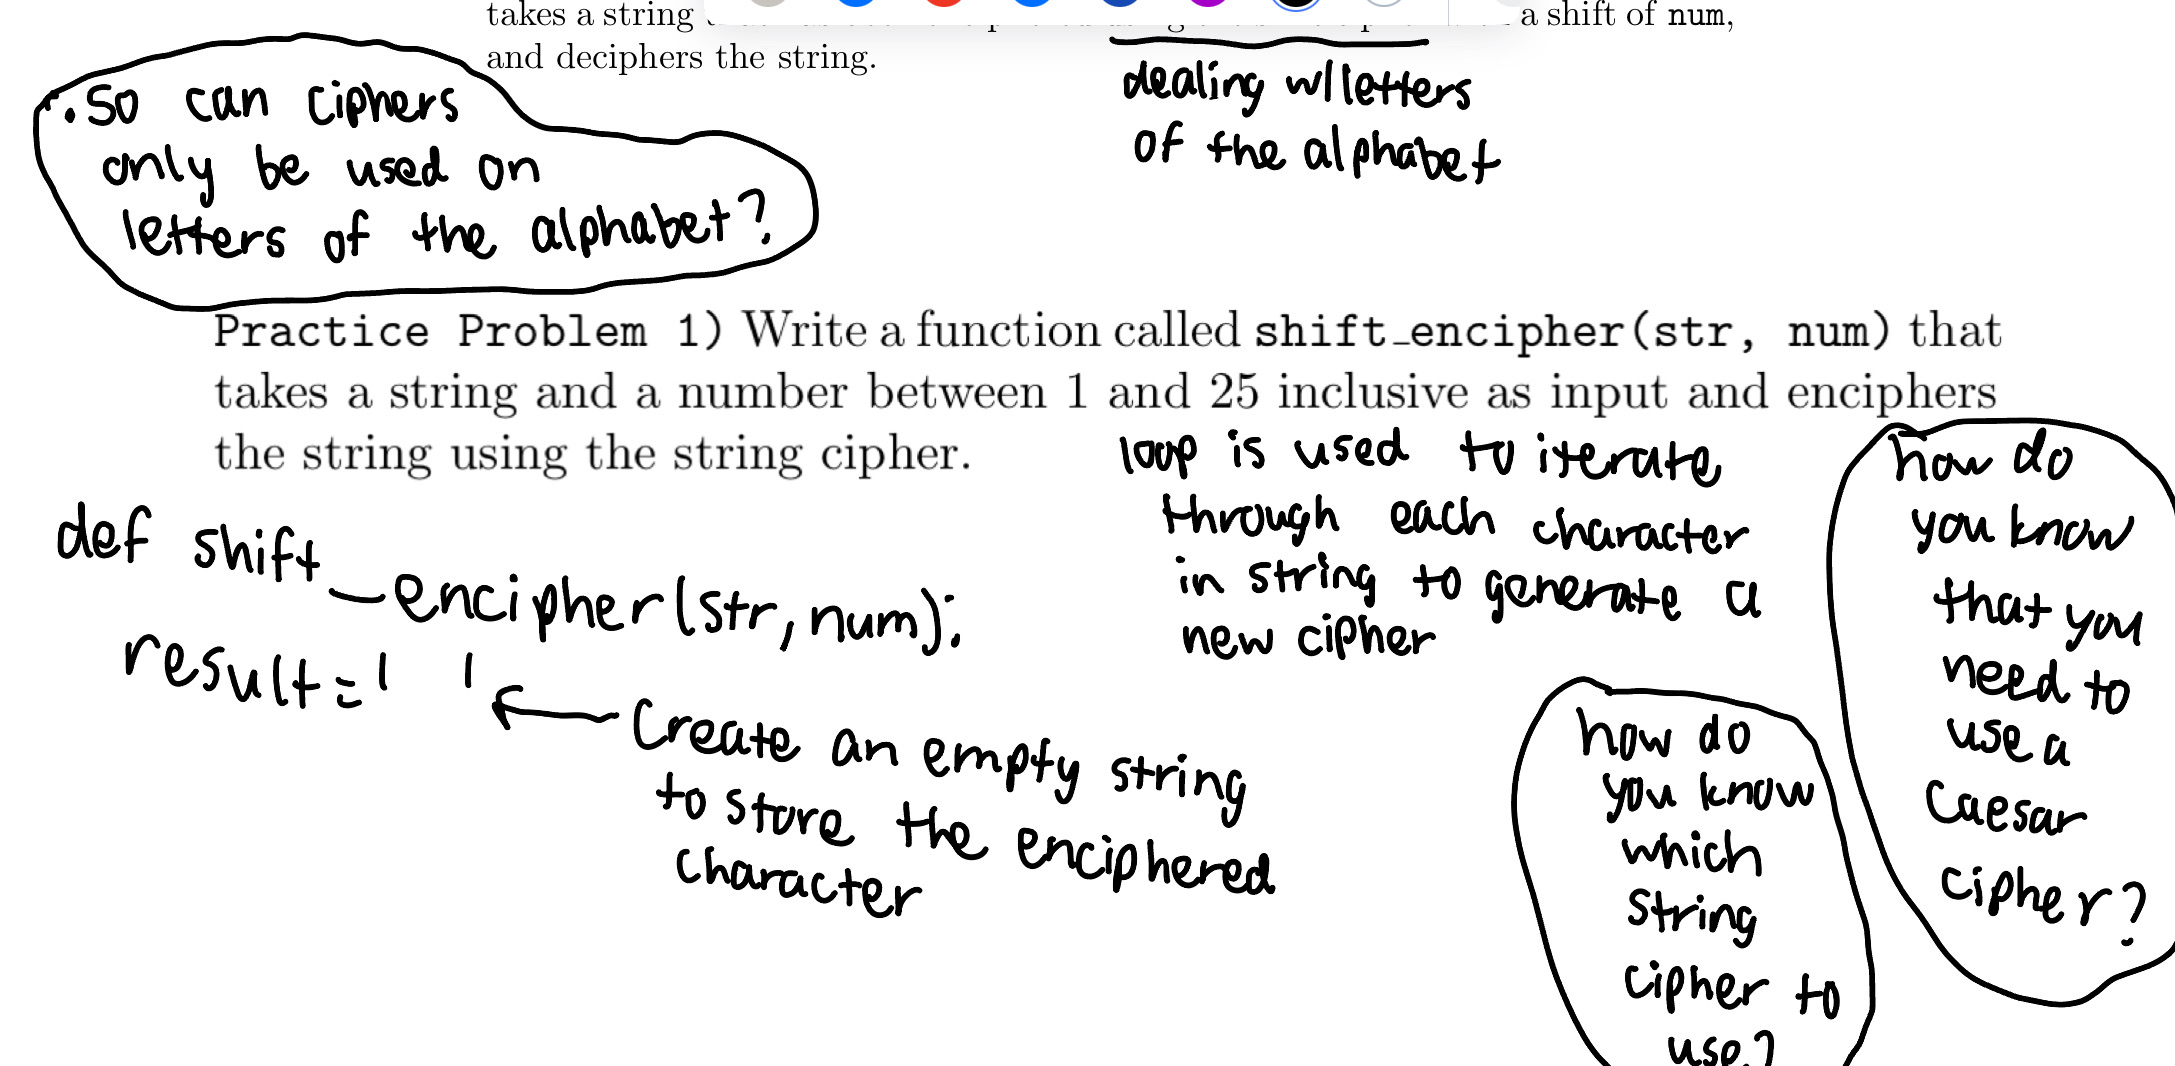 takes a string
a shift of num,
and deciphers the string.
dealing w/letters
of the alphabet
• So can ciphers
only be used on
letters of the alphabet?
Practice Problem 1) Write a function called shift_encipher(str, num) that
takes a string and a number between 1 and 25 inclusive as input and enciphers
the string using the string cipher.
loop is used to iterate
through each character
in string to generate a
new cipher
how do
you know
that you
need to
use a
Caesar
cipher?
def shift_encipher(str, num):
result = ' '
Create an empty string
to store the enciphered
character
how do
you know
which
string
cipher to
use?